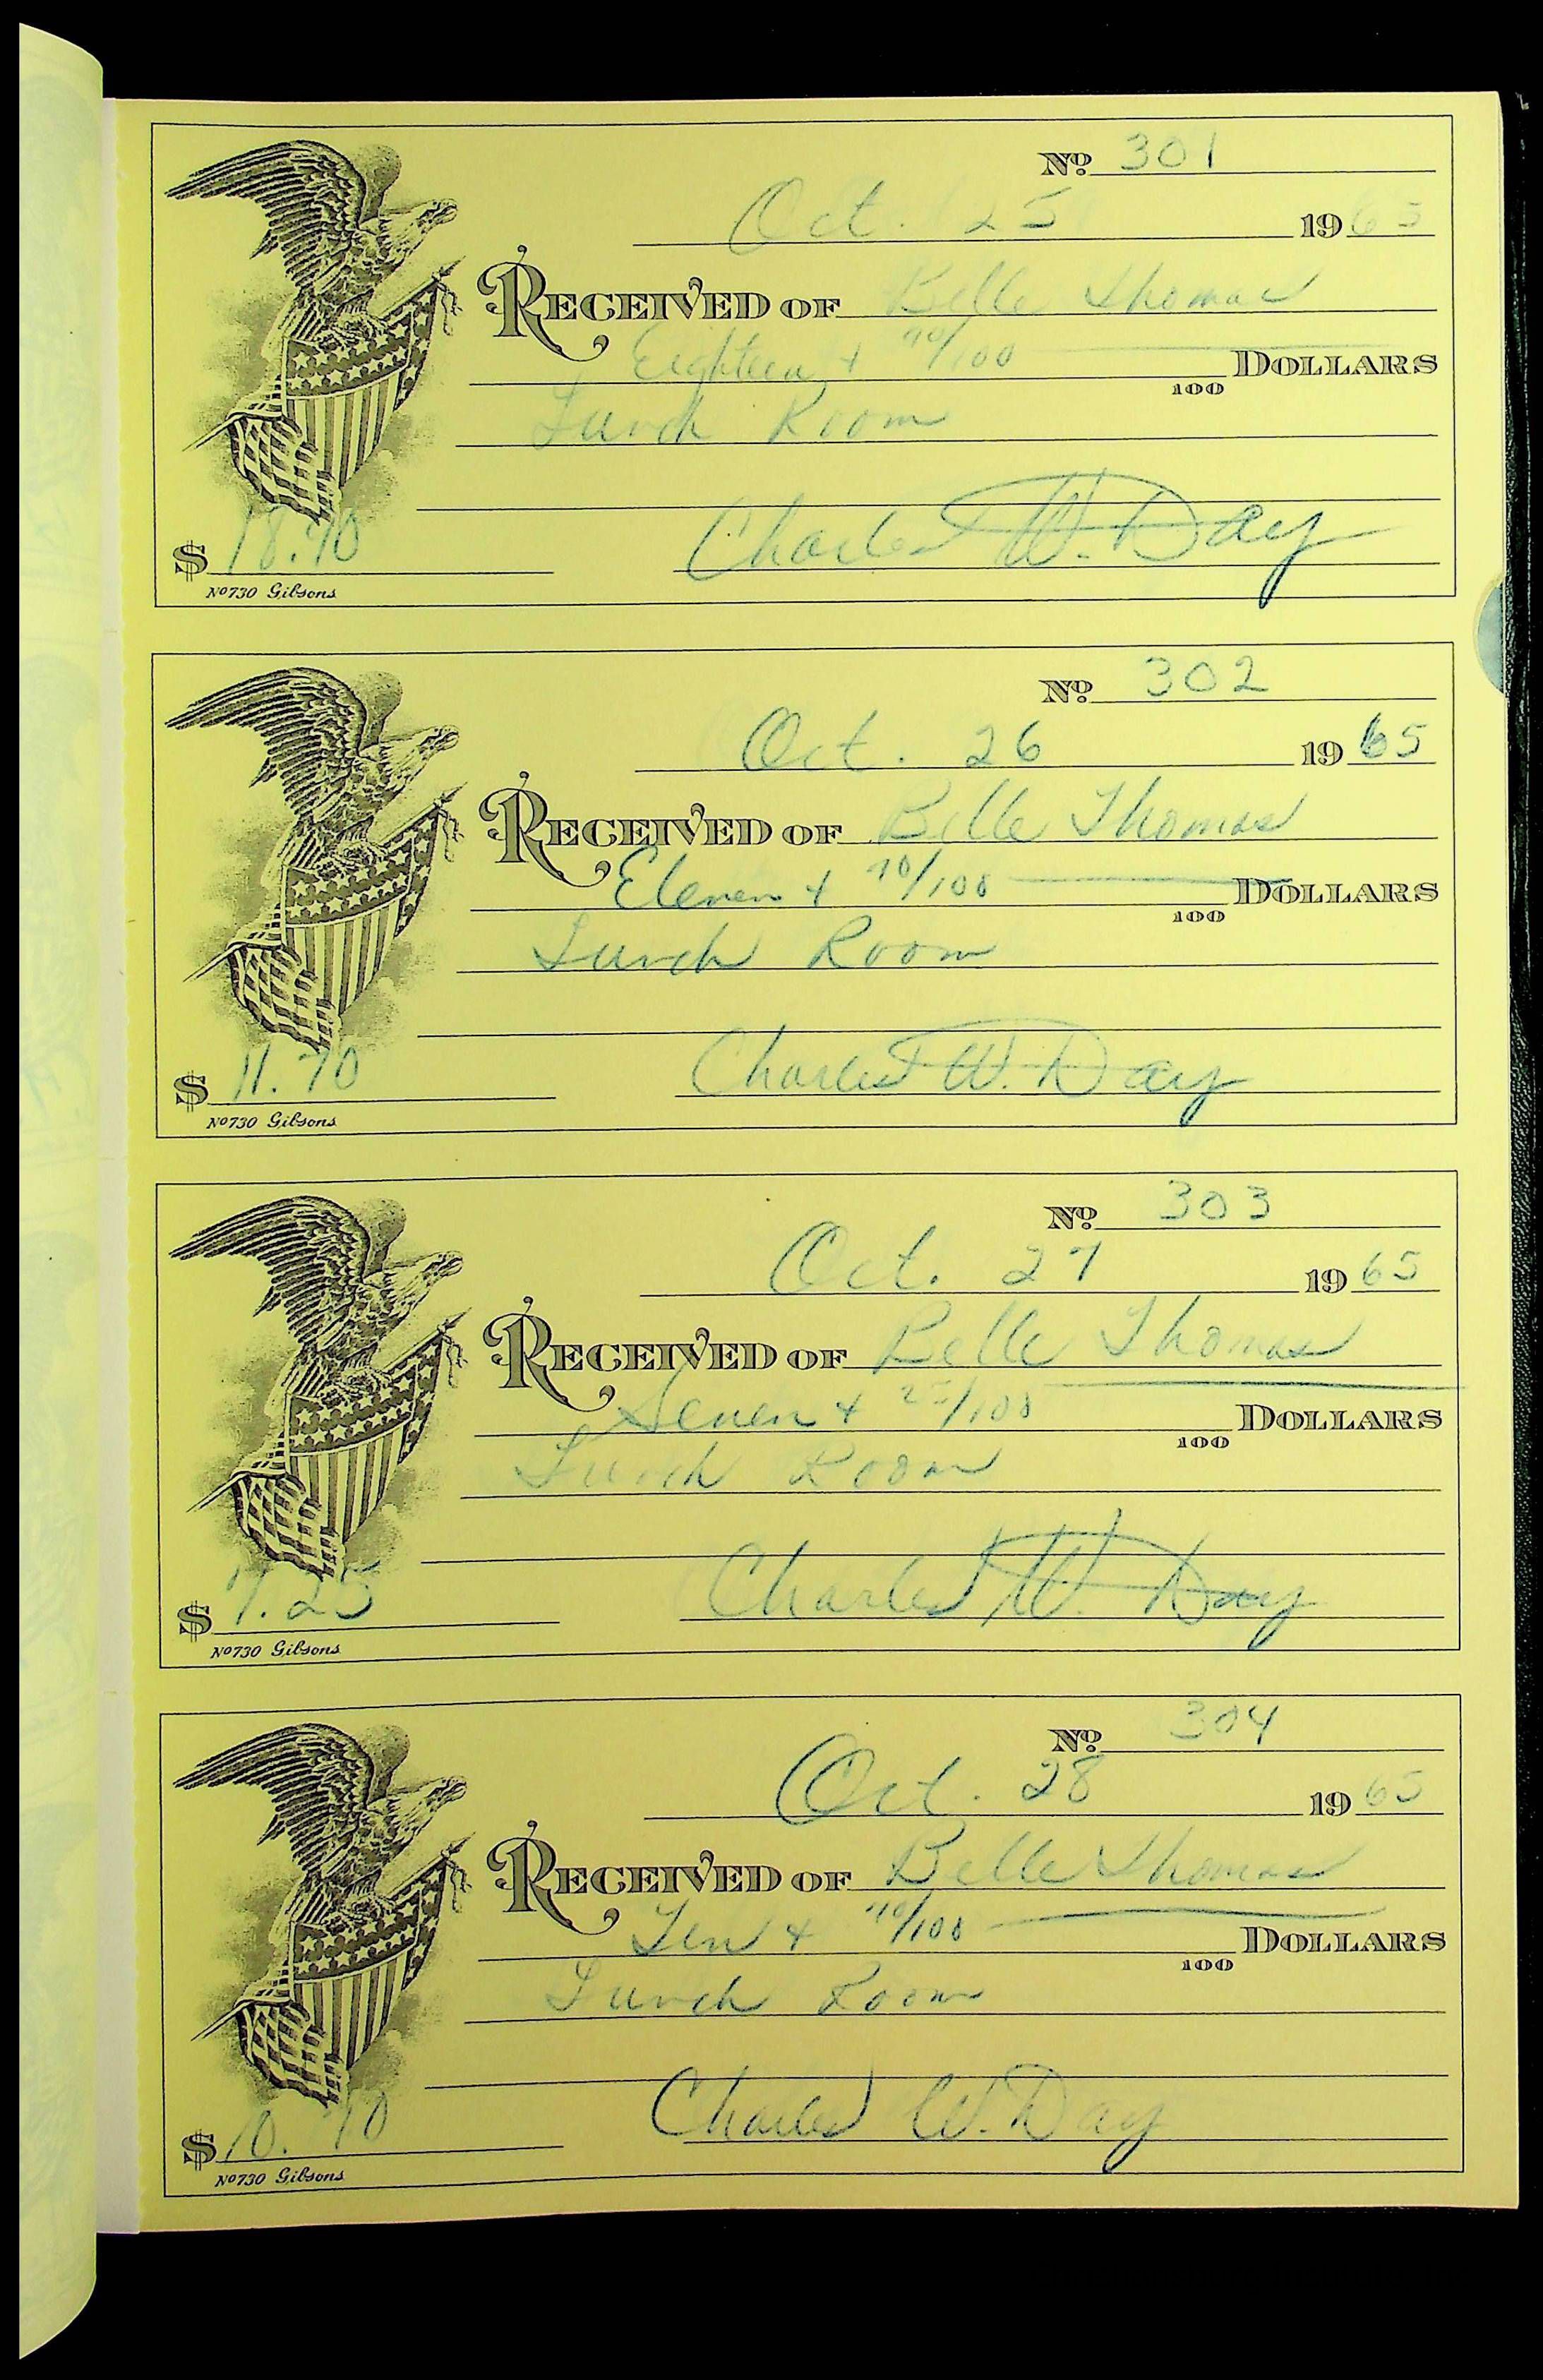 Nº 301
Oct. 25 1965
RECEIVED OF Belle Thomas
Eighteen + 70/100 DOLLARS
100
Lunch Room
Charles W. Day
$ 18.70
Nº 730 Gibsons
Nº 302
Oct. 26 1965
RECEIVED OF Belle Thomas
Eleven + 70/100 DOLLARS
100
Lunch Room
Charles W. Day
$ 11.70
Nº 730 Gibsons
Nº 303
Oct. 27 1965
RECEIVED OF Belle Thomas
Seven + 25/100 DOLLARS
100
Lunch Room
Charles W. Day
$ 7.25
Nº 730 Gibsons
Nº 304
Oct. 28 1965
RECEIVED OF Belle Thomas
Ten + 70/100 DOLLARS
100
Lunch Room
Charles W. Day
$ 10.70
Nº 730 Gibsons